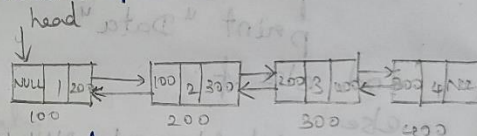 head
NULL 1 20 100 2 300 200 3 300 4
100 200 300 400